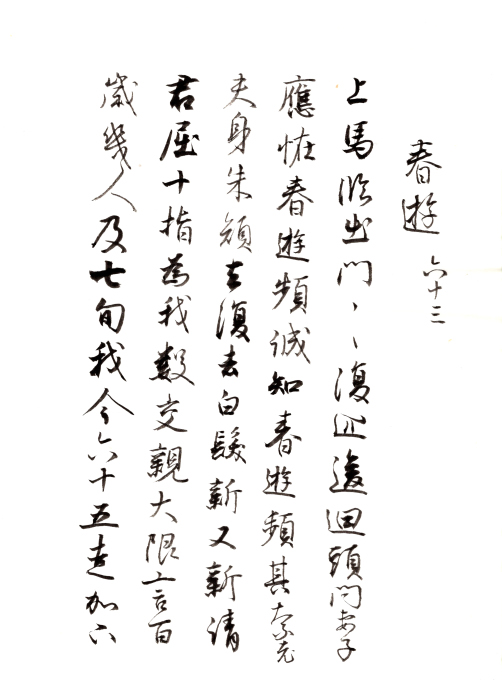 春遊 六十三
上馬臨出門丶丶復逡迴頭問妻子
應恠春遊頻誠知春遊頻其奈老
夫身朱顏去復去白髮新又新請
君屈十指為我數交親大限百
歲幾人及七旬我今六十五走